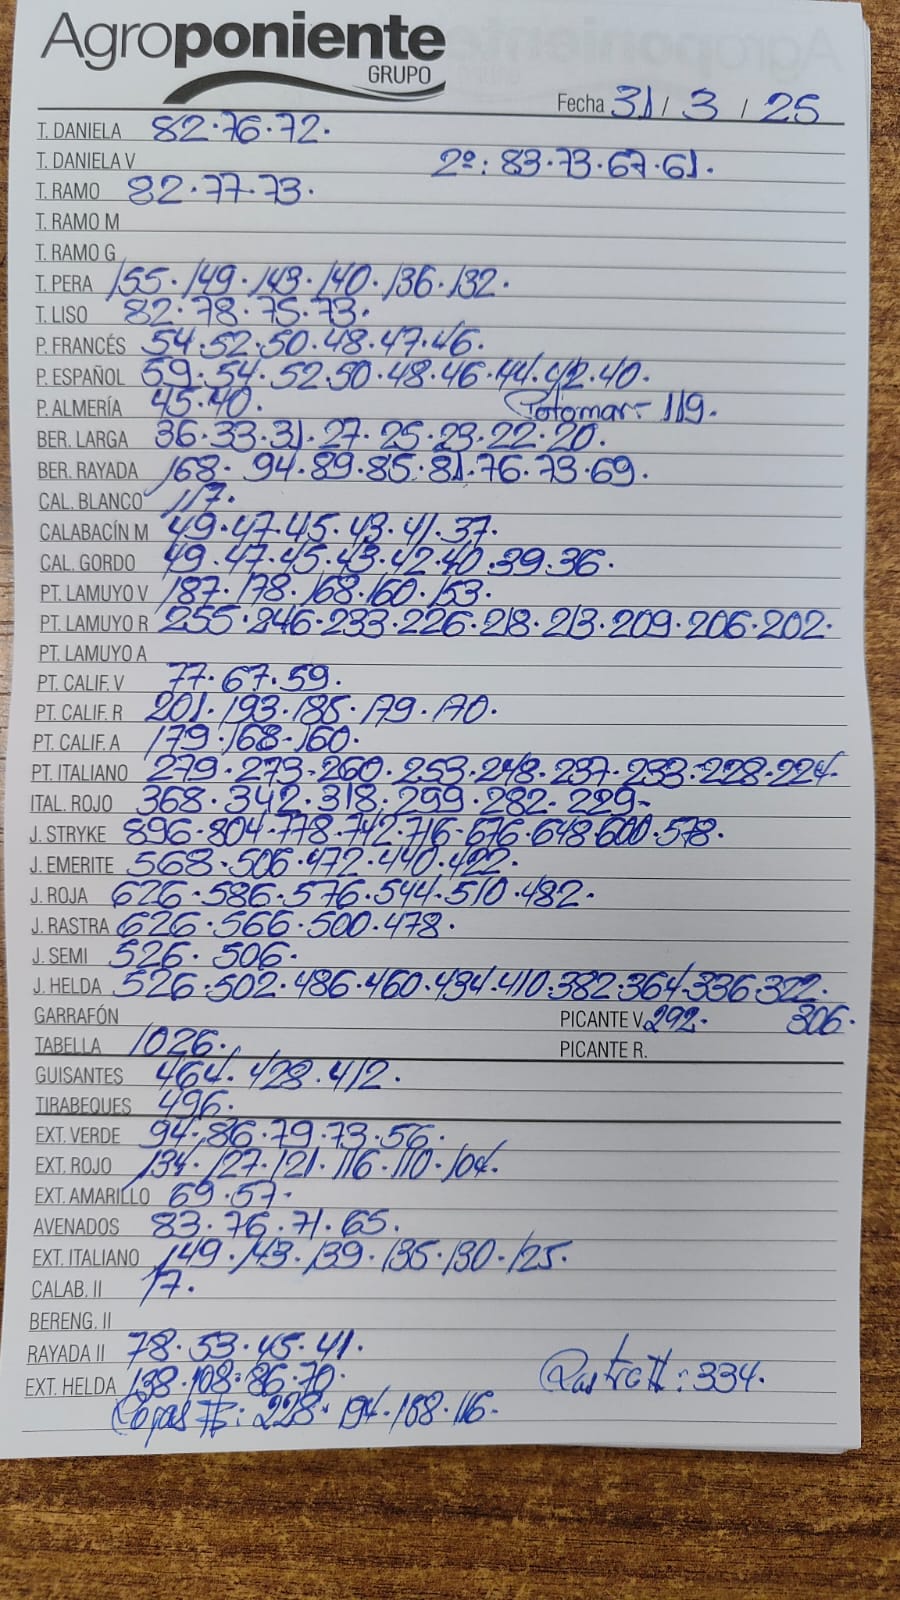 Agroponiente
GRUPO
Fecha 31 / 3 / 25
T. DANELA 82·76·72·
T. DANIELA V 2º: 83·73·67·61·
T. RAMO 82·77·73·
T. RAMO M
T. RAMO G
T. PERA 155·149·143·140·136·132·
T. LISO 82·78·75·73·
P. FRANCÉS 54·52·50·48·47·46·
P. ESPAÑOL 59·54·52·50·48·46·44·42·40·
P. ALMERÍA 45·40· Potomar- 119·
BER. LARGA 36·33·31·27·25·23·22·20·
BER. RAYADA 168· 94·89·85·81·76·73·69·
CAL. BLANCO 117·
CALABACÍN M 49·47·45·43·41·37·
CAL. GORDO 49·47·45·43·42·40·39·36·
PT. LAMUYO V 187·178·168·160·153·
PT. LAMUYO R 255·246·233·226·218·213·209·206·202·
PT. LAMUYO A
PT. CALIF. V 77·67·59·
PT. CALIF. R 201·193·185·179·170·
PT. CALIF. A 179·168·160·
PT. ITALIANO 279·273·260·253·248·237·233·228·224·
ITAL. ROJO 368·342·318·299·282·229-
J. STRYKE 896·804·778·742·716·676·648·600·578·
J. EMERITE 568·506·472·440·422·
J. ROJA 626·586·576·544·510·482·
J. RASTRA 626·566·500·478·
J. SEMI 526·506·
J. HELDA 526·502·486·460·434·410·382·364·336·322·
GARRAFÓN PICANTE V. 292· 306·
TABELLA 1026· PICANTE R.
GUISANTES 464·428·412·
TIRABEQUES 496·
EXT. VERDE 94·86·79·73·56·
EXT. ROJO 134·127·121·116·110·104·
EXT. AMARILLO 69·57·
AVENADOS 83·76·71·65·
EXT. ITALIANO 149·143·139·135·130·125·
CALAB. II 17·
BERENG. II
RAYADA II 78·53·45·41·
EXT. HELDA 138·108·86·70· Rastra II: 334·
II: 228·194·188·116·